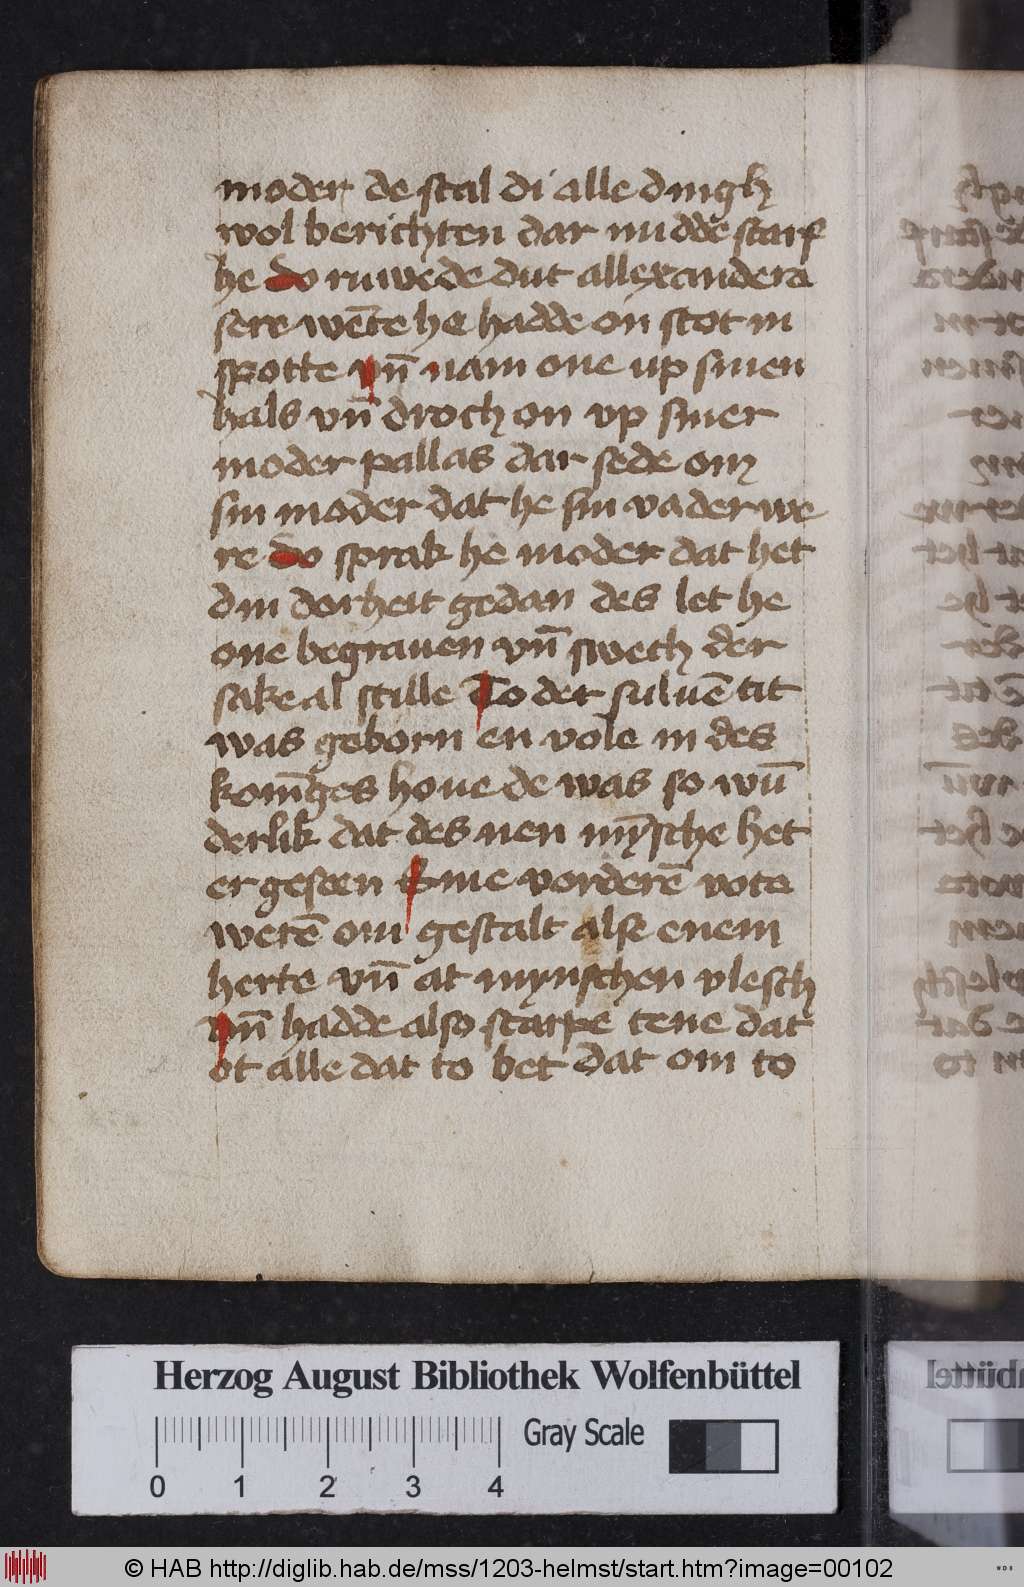 moder de stal di alle dingh
wol berichten dar midde starf
he do ruwede dut allexandera
sere wēte he hadde on stot in
spotte vn̄ nam one up sinen
hals vn̄ droch on vp siner
moder pallas dar sede om
sin moder dat he sin vader we
re do sprak he moder dat het
din dorheit gedan des let he
one begrauen vn̄ swech der
sake al stille To der suluē tit
was geborn en vole in des
konīges houe de was so wū
derlik dat des nen mȳsche het
er geseen Sine vorderē vote
werē om gestalt alse enem
herte vn̄ at mynschen vlesch
vn̄ hadde also scarpe tene dat
ot alle dat to bet dat om to
Herzog August Bibliothek Wolfenbüttel
0 1 2 3 4
Gray Scale
© HAB http://diglib.hab.de/mss/1203-helmst/start.htm?image=00102